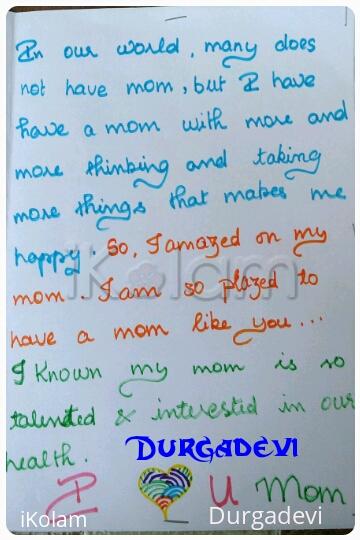 In our world, many does
not have mom, but I have
have a mom with more and
more thinking and taking
more things that makes me
happy. So, I amazed on my
mom. I am so plazed to
have a mom like you...
I Known my mom is so
talented & interested in our
health. DURGADEVI
I U Mom
iKolam
iKolam Durgadevi